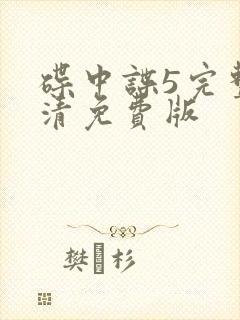 碟中諜5完整
清免費版
樊 杉